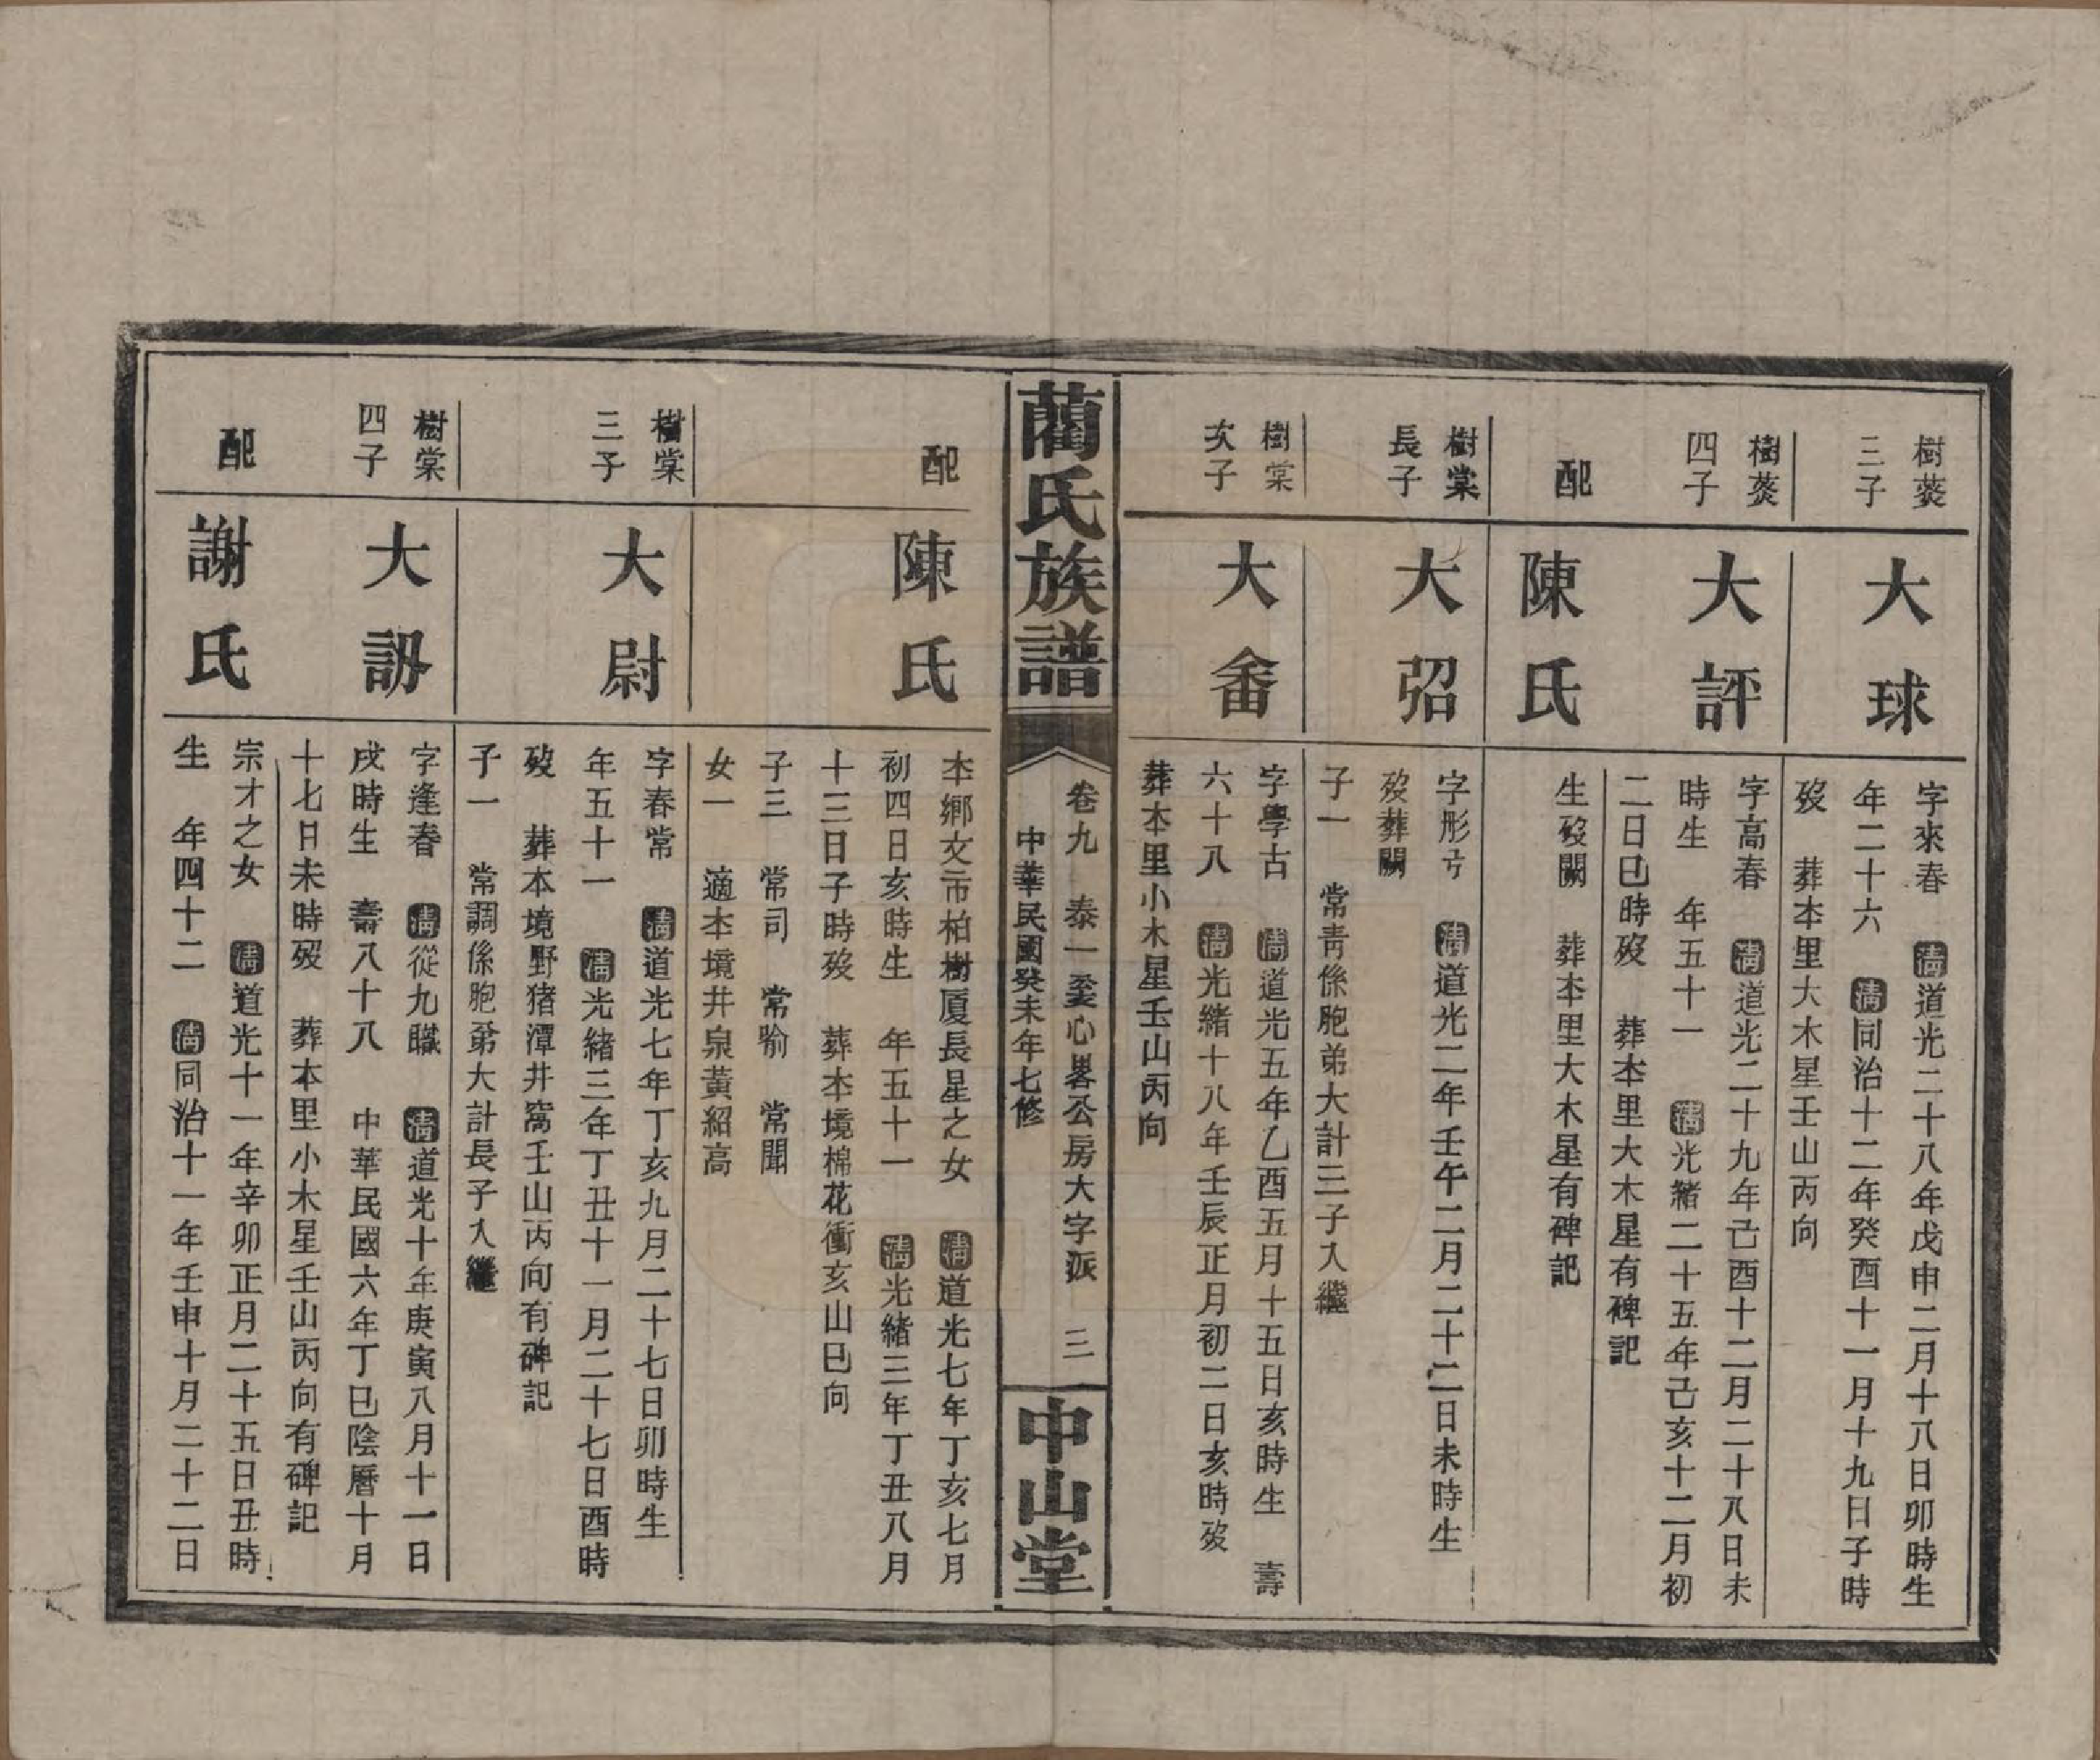 樹葵
三子
大球
字來春　清道光二十八年戊申二月十八日卯時生
年二十六　清同治十二年癸酉十一月十九日子時
歿　葬本里大木星壬山丙向
樹葵
四子
大評
字高春　清道光二十九年己酉十二月二十八日未
時生　年五十一　清光緒二十五年己亥十二月初
二日巳時歿　葬本里大木星有碑記
配
陳氏
生歿闕　葬本里大木星有碑記
樹棠
長子
大弨
字彤弓　清道光二年壬午二月二十二日未時生
歿葬闕
子一　常青係胞弟大計三子入繼
樹棠
次子
大畬
字學古　清道光五年乙酉五月十五日亥時生　壽
六十八　清光緒十八年壬辰正月初二日亥時歿
葬本里小木星壬山丙向
藺氏族譜
卷九　泰一至心畧公房大字派　三
中華民國癸未年七修
中山堂
配
陳氏
本鄉文市柏樹廈長星之女　清道光七年丁亥七月
初四日亥時生　年五十一　清光緒三年丁丑八月
十三日子時歿　葬本境棉花衝亥山巳向
子三　常司　常喻　常聞
女一　適本境井泉黃紹高
樹棠
三子
大尉
字春常　清道光七年丁亥九月二十七日卯時生
年五十一　清光緒三年丁丑十一月二十七日酉時
歿　葬本境野猪潭井窩壬山丙向有碑記
子一　常調係胞弟大計長子入繼
樹棠
四子
大訒
字逢春　清從九職　清道光十年庚寅八月十一日
戌時生　壽八十八　中華民國六年丁巳陰曆十月
十七日未時歿　葬本里小木星壬山丙向有碑記
配
謝氏
宗才之女　清道光十一年辛卯正月二十五日丑時
生　年四十二　清同治十一年壬申十月二十二日